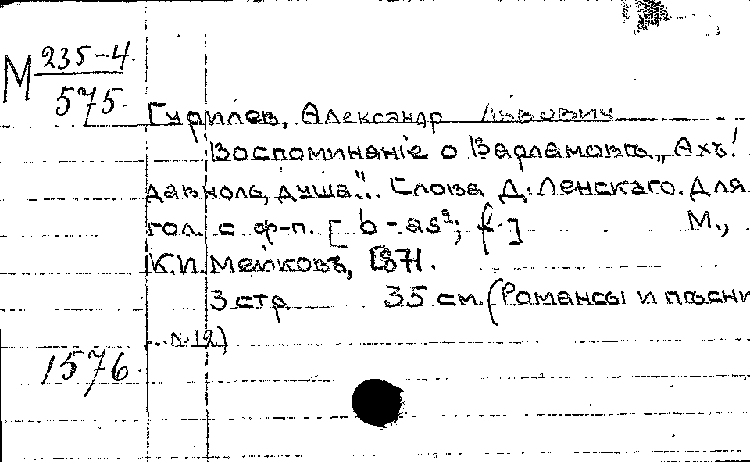 М 235-4
575.
Гурилев, Александр Львович
Воспоминаніе о Варламовѣ „Ахъ!
давноль, душа"... Слова Д. Ленскаго. Для
гол. с ф-п. [ b - as²; f. ] М.,
К.И. Мейковъ,
3 стр 35 см. (Романсы и пѣсни
№ 12)
1576.